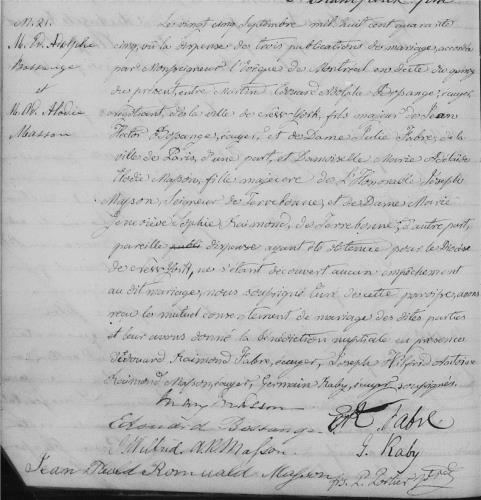 M. 21.
M. Ed. Adolphe
Bossange
et
M. Ad. Elodie
Masson
Le vingt cinq Septembre mil huit cent quarante
cinq, vû la dispense des trois publications de mariage, accordée
par Monseigneur l'Evêque de Montréal en date du quinze
du présent, entre Martin Edouard Adolphe Bossange, écuyer,
négociant, de la ville de New-York, fils majeur de Jean
Hector Bossange, écuyer, et de Dame Julie Fabre, de la
ville de Paris, d'une part, et Damoiselle Marie Adelaïde
Elodie Masson, fille majeure de L'Honorable Joseph
Masson, Seigneur de Terrebonne, et de Dame Marie
Geneviève Sophie Raimond, de Terrebonne, d'autre part,
pareille dispense ayant été obtenue pour le Diocèse
de New-York, ne s'étant découvert aucun empêchement
au dit mariage, nous soussigné Curé de cette paroisse, avons
reçu leur mutuel consentement de mariage des dites parties
et leur avons donné la bénédiction nuptiale en présence
d'Edouard Raimond Fabre, écuyer, Joseph Wilfrid Antoine
Raimond Masson, écuyer, Germain Raby, écuyer soussignés.
Masson
Edouard Bossange
E R Fabre
J. Wilfrid A. R. Masson.
G. Raby
Jean David Romuald Masson
frs. P. Porlier Ptre